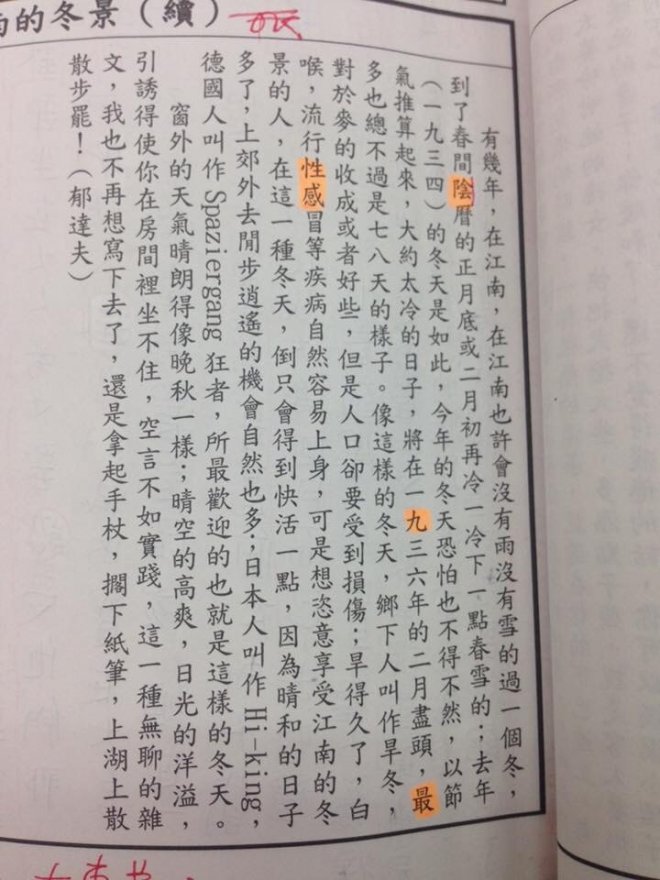 南的冬景（續）
有幾年，在江南，在江南也許會沒有雨沒有雪的過一個冬，
到了春間陰曆的正月底或二月初再冷一冷下一點春雪的；去年
（一九三四）的冬天是如此，今年的冬天恐怕也不得不然，以節
氣推算起來，大約太冷的日子，將在一九三六年的二月盡頭，最
多也總不過是七八天的樣子。像這樣的冬天，鄉下人叫作旱冬，
對於麥的收成或者好些，但是人口卻要受到損傷；旱得久了，白
喉，流行性感冒等疾病自然容易上身，可是想恣意享受江南的冬
景的人，在這一種冬天，倒只會得到快活一點，因為晴和的日子
多了，上郊外去閒步逍遙的機會自然也多；日本人叫作 Hi-king,
德國人叫作 Spaziergang 狂者，所最歡迎的也就是這樣的冬天。
窗外的天氣晴朗得像晚秋一樣；晴空的高爽，日光的洋溢，
引誘得使你在房間裡坐不住，空言不如實踐，這一種無聊的雜
文，我也不再想寫下去了，還是拿起手杖，擱下紙筆，上湖上散
散步罷！（郁達夫）